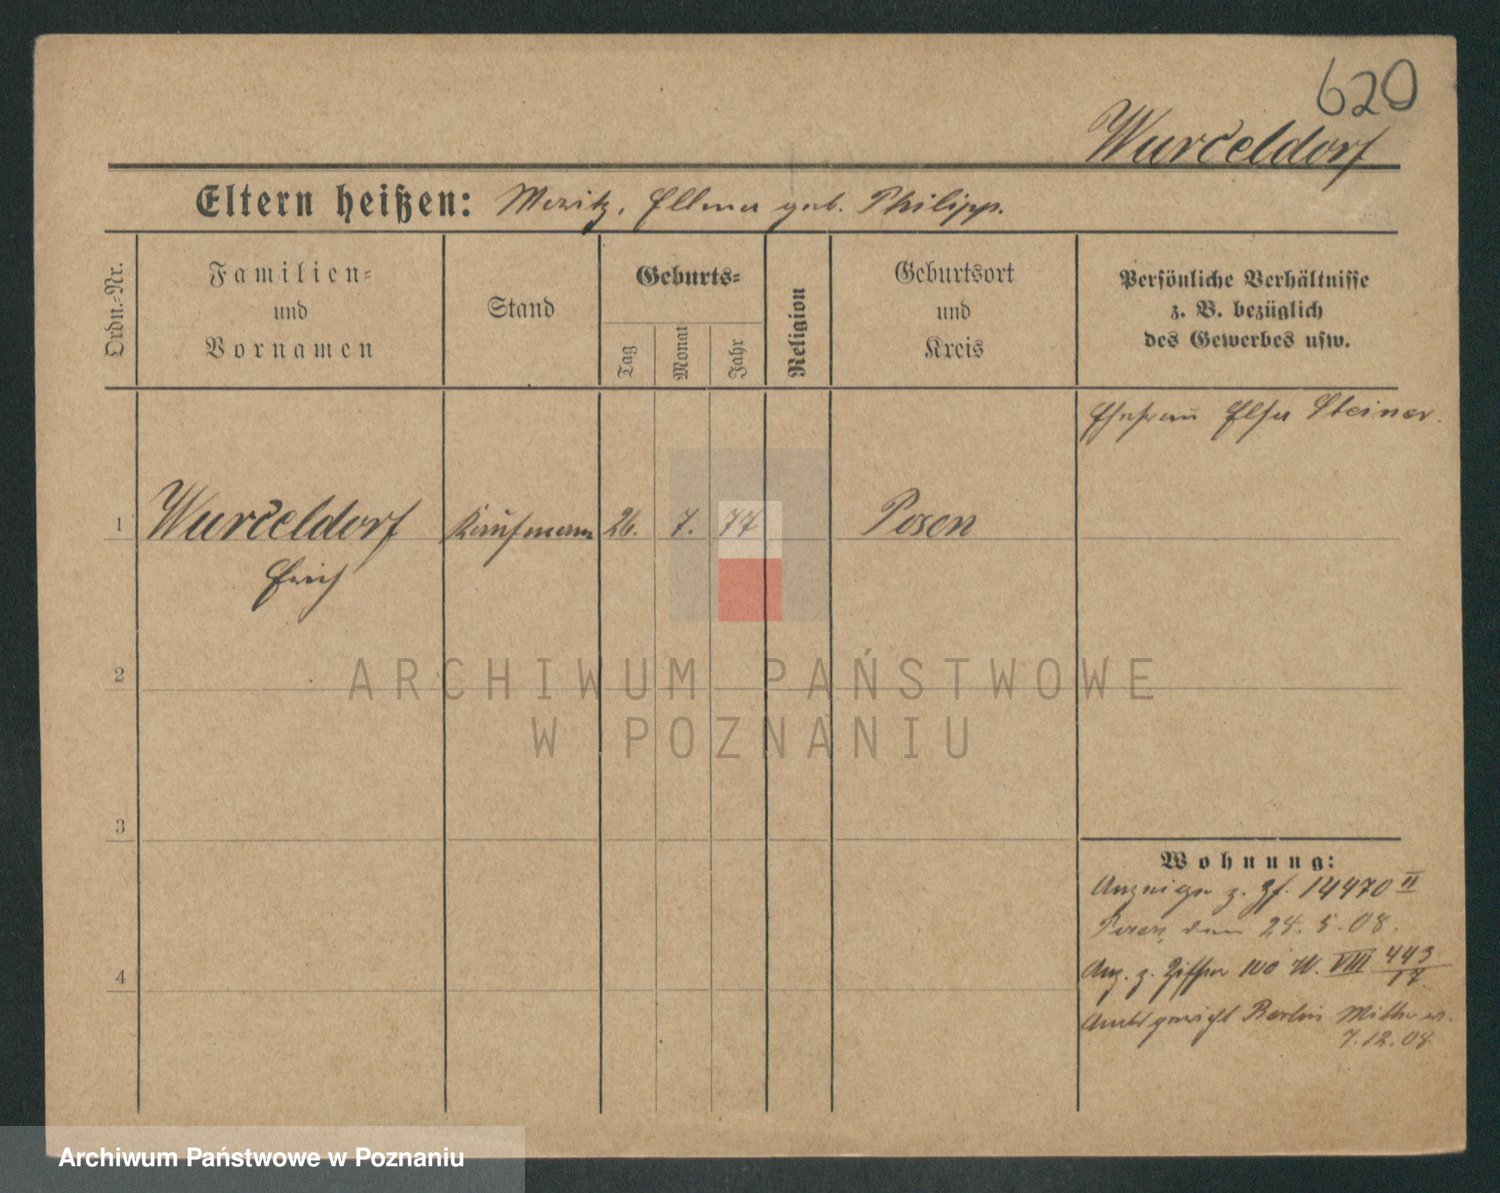 620
Wurceldorf
Eltern heißen: Moritz, Ellma geb. Philipp.
Ordn.-Nr.
Familien-
und
Vornamen
Stand
Geburts-
Tag
Monat
Jahr
Religion
Geburtsort
und
Kreis
Persönliche Verhältnisse
z. B. bezüglich
des Gewerbes usw.
Ehefrau Elsa Steiner.
1 Wurceldorf Kaufmann 26. 7. 77 Posen
Erich
2
3
4
Wohnung:
Anzeige z. Zf. 14470 II
Posen, den 24. 5. 08.
Anz. z. Ziffer 100 W. VIII 443/17
Amtsgericht Berlin Mitte
7.12.08
ARCHIWUM PAŃSTWOWE
W POZNANIU
Archiwum Państwowe w Poznaniu